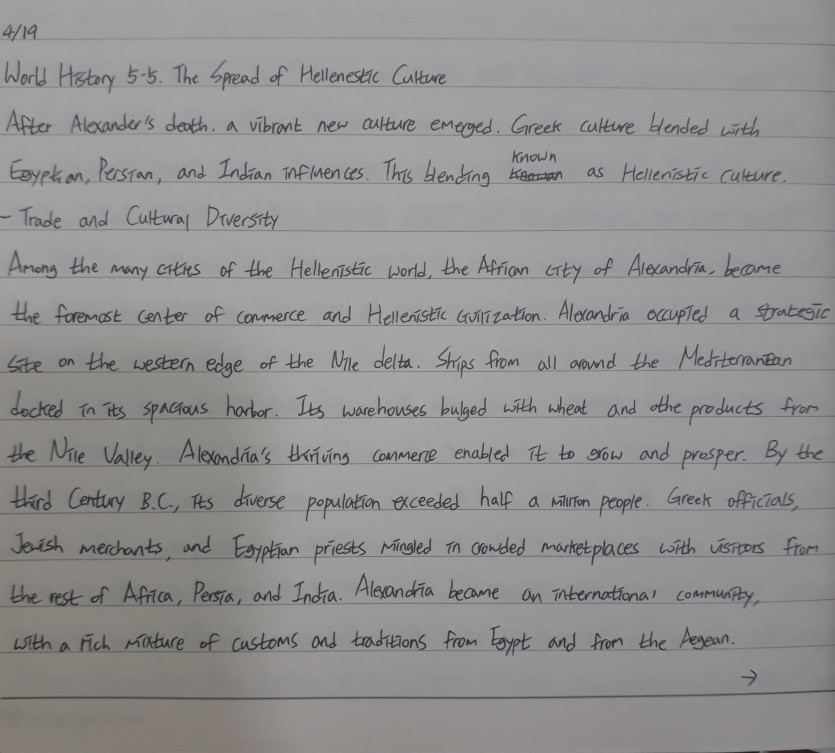 4/19
World History 5-5. The Spread of Hellenestic Culture
After Alexander's death. a vibrant new culture emerged. Greek culture blended with
Egyptian, Persian, and Indian influences. This blending known as Hellenistic culture.
- Trade and Cultural Diversity
Among the many cities of the Hellenistic world, the African city of Alexandria, became
the foremost center of commerce and Hellenistic Civilization. Alexandria occupied a strategic
site on the western edge of the Nile delta. Ships from all around the Mediterranean
docked in its spacious harbor. Its warehouses bulged with wheat and othe products from
the Nile Valley. Alexandria's thriving commerce enabled it to grow and prosper. By the
third Century B.C., its diverse population exceeded half a million people. Greek officials,
Jewish merchants, and Egyptian priests mingled in crowded marketplaces with visitors from
the rest of Africa, Persia, and India. Alexandria became an international community,
with a rich mixture of customs and traditions from Egypt and from the Aegean.
→